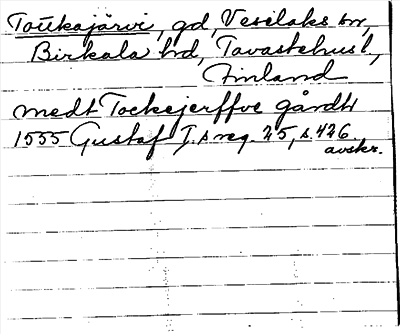 Toukajärvi, gd, Vesilaks sn,
Birkala hd, Tavastehus l.,
Finland
medt Tockejerffve gårdh
1555 Gustaf I.s reg. 25, s. 426.
avskr.